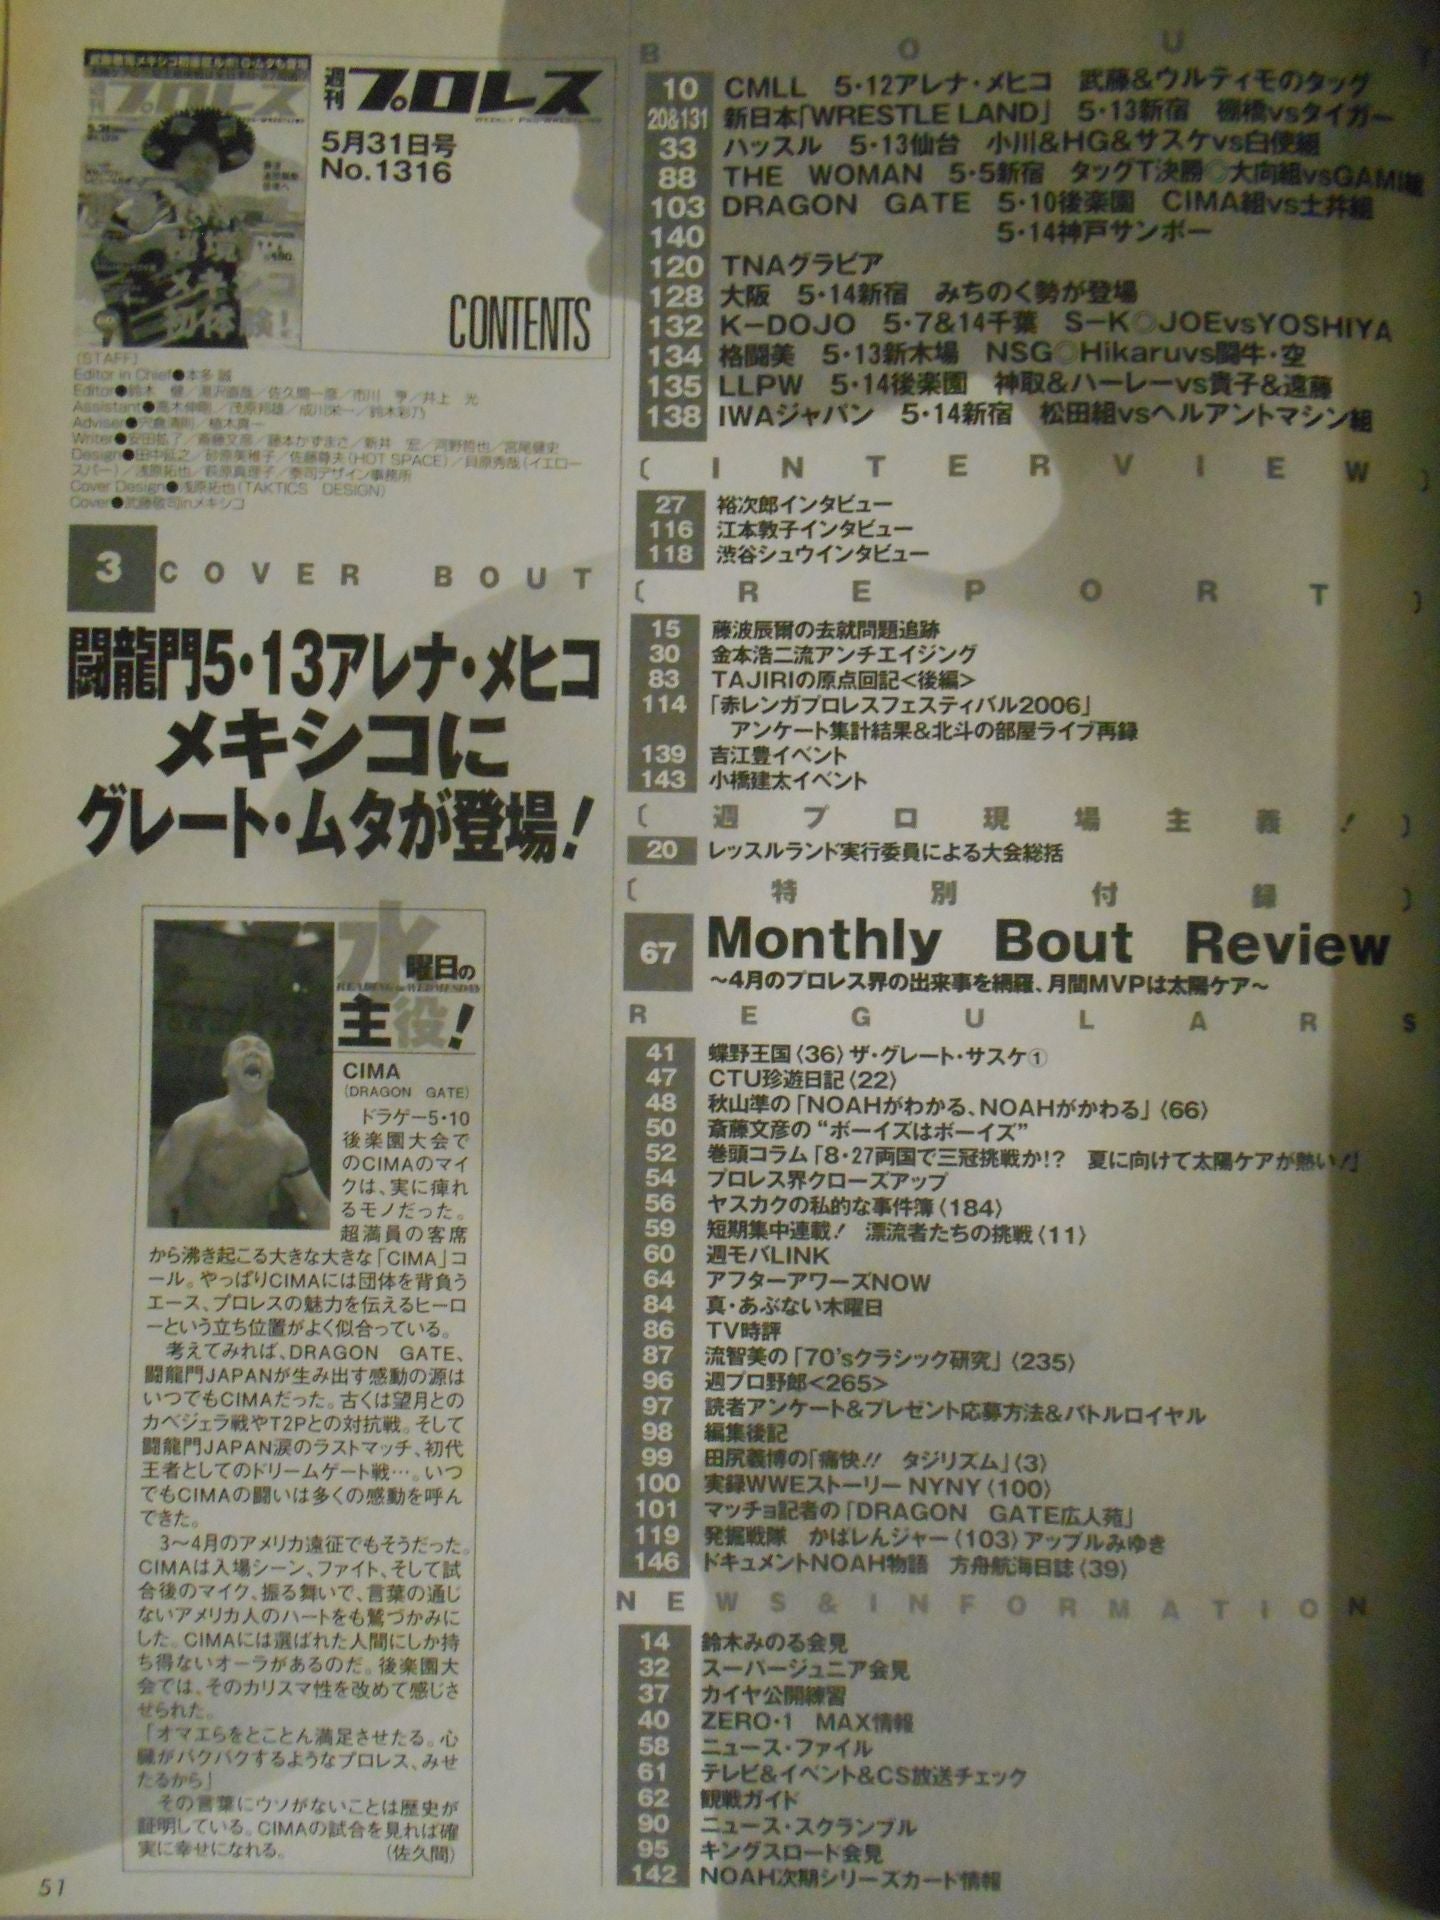 週刊プロレス
WEEKLY PRO-WRESTLING
5月31日号
No.1316
CONTENTS
〔STAFF〕
Editor in Chief●本多 誠
Editor●鈴木 健／湯沢直哉／佐久間一彦／市川 亨／井上 光
Assistant●高木伸剛／茂原邦雄／成川栄一／鈴木彩乃
Adviser●宍倉清則／植木真一
Writer●安田拡了／斎藤文彦／藤本かずまさ／新井 宏／河野哲也／宮尾健史
Design●田中延之／砂原美稚子／佐藤尊夫(HOT SPACE)／貝原秀哉(イエロー
スパー)／浅原拓也／萩原真理子／泰司デザイン事務所
Cover Design●浅原拓也(TAKTICS DESIGN)
Cover●武藤敬司inメキシコ
3 COVER BOUT
闘龍門5・13アレナ・メヒコ
メキシコに
グレート・ムタが登場！
水曜日の
READING in WEDNESDAY
主役！
CIMA
(DRAGON GATE)
ドラゲー5・10
後楽園大会で
のCIMAのマイ
クは、実に痺れ
るモノだった。
超満員の客席
から沸き起こる大きな大きな「CIMA」コ
ール。やっぱりCIMAには団体を背負う
エース、プロレスの魅力を伝えるヒーロ
ーという立ち位置がよく似合っている。
考えてみれば、DRAGON GATE、
闘龍門JAPANが生み出す感動の源は
いつでもCIMAだった。古くは望月との
カベジェラ戦やT2Pとの対抗戦。そして
闘龍門JAPAN涙のラストマッチ、初代
王者としてのドリームゲート戦…。いつ
でもCIMAの闘いは多くの感動を呼ん
できた。
3〜4月のアメリカ遠征でもそうだった。
CIMAは入場シーン、ファイト、そして試
合後のマイク、振る舞いで、言葉の通じ
ないアメリカ人のハートをも鷲づかみに
した。CIMAには選ばれた人間にしか持
ち得ないオーラがあるのだ。後楽園大
会では、そのカリスマ性を改めて感じさ
せられた。
「オマエらをとことん満足させたる。心
臓がバクバクするようなプロレス、みせ
たるから」
その言葉にウソがないことは歴史が
証明している。CIMAの試合を見れば確
実に幸せになれる。 (佐久間)
51
B O U T
10 CMLL 5・12アレナ・メヒコ 武藤&ウルティモのタッグ
20&131 新日本「WRESTLE LAND」 5・13新宿 棚橋vsタイガー
33 ハッスル 5・13仙台 小川&HG&サスケvs白使組
88 THE WOMAN 5・5新宿 タッグT決勝◎大向組vsGAMI組
103 DRAGON GATE 5・10後楽園 CIMA組vs土井組
140 5・14神戸サンボー
120 TNAグラビア
128 大阪 5・14新宿 みちのく勢が登場
132 K−DOJO 5・7&14千葉 S−K◎JOEvsYOSHIYA
134 格闘美 5・13新木場 NSG◎Hikaruvs闘牛・空
135 LLPW 5・14後楽園 神取&ハーレーvs貴子&遠藤
138 IWAジャパン 5・14新宿 松田組vsヘルアントマシン組
〔INTERVIEW〕
27 裕次郎インタビュー
116 江本敦子インタビュー
118 渋谷シュウインタビュー
〔REPORT〕
15 藤波辰爾の去就問題追跡
30 金本浩二流アンチエイジング
83 TAJIRIの原点回記<後編>
114 「赤レンガプロレスフェスティバル2006」
アンケート集計結果&北斗の部屋ライブ再録
139 吉江豊イベント
143 小橋建太イベント
〔週プロ現場主義！〕
20 レッスルランド実行委員による大会総括
〔特別付録〕
67 Monthly Bout Review
〜4月のプロレス界の出来事を網羅、月間MVPは太陽ケア〜
REGULARS
41 蝶野王国〈36〉ザ・グレート・サスケ①
47 CTU珍遊日記〈22〉
48 秋山準の「NOAHがわかる、NOAHがかわる」〈66〉
50 斎藤文彦の“ボーイズはボーイズ”
52 巻頭コラム「8・27両国で三冠挑戦か!? 夏に向けて太陽ケアが熱い！」
54 プロレス界クローズアップ
56 ヤスカクの私的な事件簿〈184〉
59 短期集中連載！ 漂流者たちの挑戦〈11〉
60 週モバLINK
64 アフターアワーズNOW
84 真・あぶない木曜日
86 TV時評
87 流智美の「70'sクラシック研究」〈235〉
96 週プロ野郎<265>
97 読者アンケート&プレゼント応募方法&バトルロイヤル
98 編集後記
99 田尻義博の「痛快!! タジリズム」〈3〉
100 実録WWEストーリー NYNY〈100〉
101 マッチョ記者の「DRAGON GATE広人苑」
119 発掘戦隊 かばレんジャー〈103〉アップルみゆき
146 ドキュメントNOAH物語 方舟航海日誌〈39〉
NEWS&INFORMATION
14 鈴木みのる会見
32 スーパージュニア会見
37 カイヤ公開練習
40 ZERO・1 MAX情報
58 ニュース・ファイル
61 テレビ&イベント&CS放送チェック
62 観戦ガイド
90 ニュース・スクランブル
95 キングスロード会見
142 NOAH次期シリーズカード情報